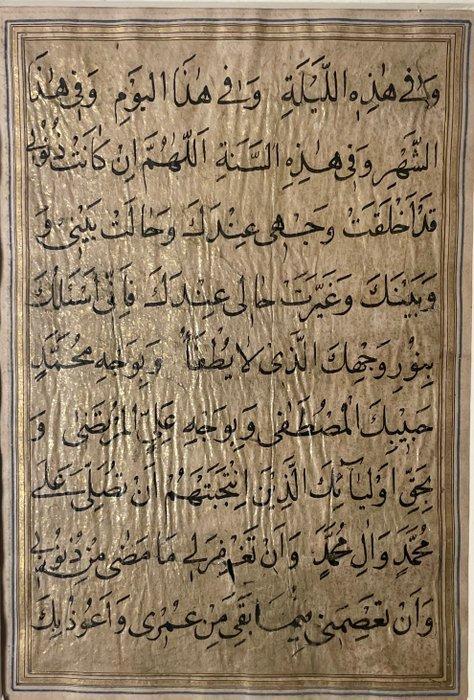 وَفِي هٰذِهِ اللَّيْلَةِ وَفِي هٰذَا الْيَوْمِ وَفِي هٰذَا
الشَّهْرِ وَفِي هٰذِهِ السَّنَةِ اَللّٰهُمَّ اِنْ كَانَتْ ذُنُوبِي
قَدْ اَخْلَقَتْ وَجْهِي عِنْدَكَ وَحَالَتْ بَيْنِي وَ
وَبَيْنَكَ وَغَيَّرَتْ حَالِي عِنْدَكَ فَاِنِّي اَسْئَلُكَ
بِنُورِ وَجْهِكَ الَّذِي لَا يُطْفَأُ وَبِوَجْهِ مُحَمَّدٍ
حَبِيبِكَ الْمُصْطَفٰى وَبِوَجْهِ عَلِيٍّ الْمُرْتَضٰى وَ
بِحَقِّ اَوْلِيَآئِكَ الَّذِينَ انْتَجَبْتَهُمْ اَنْ تُصَلِّيَ عَلٰى
مُحَمَّدٍ وَاٰلِ مُحَمَّدٍ وَاَنْ تَغْفِرَ لِي مَا مَضٰى مِنْ ذُنُوبِي
وَاَنْ تَعْصِمَنِي فِيمَا بَقِيَ مِنْ عُمْرِي وَاَعُوذُ بِكَ